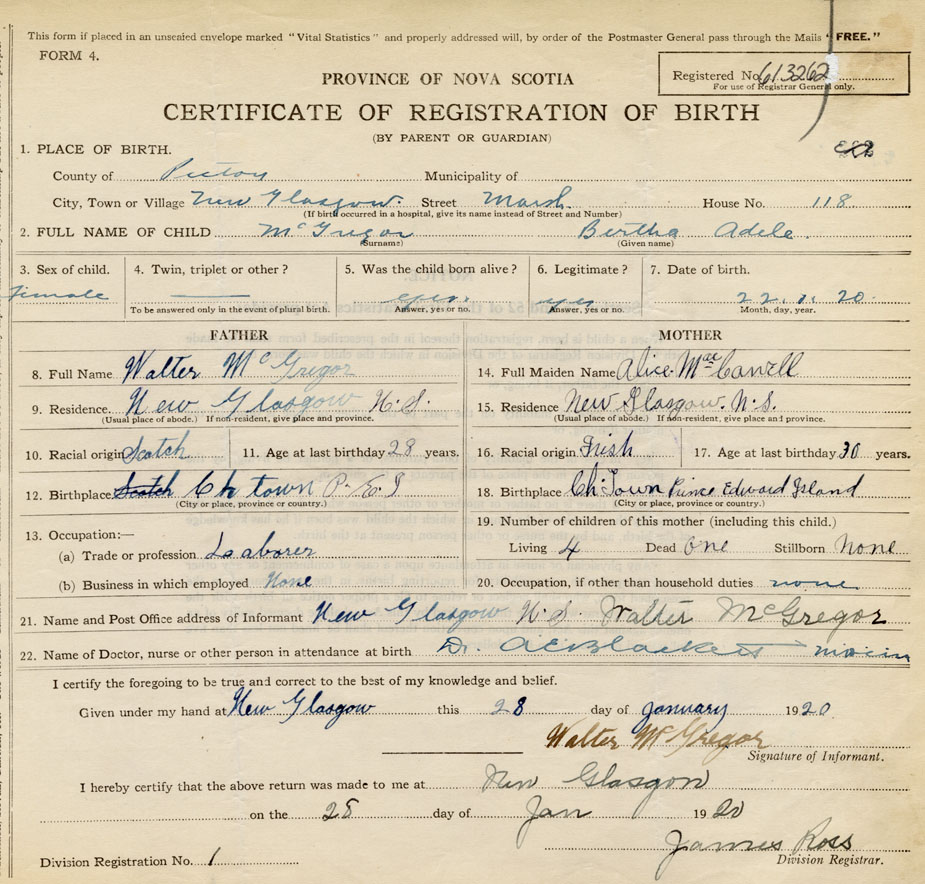 This form if placed in an unsealed envelope marked "Vital Statistics" and properly addressed will, by order of the Postmaster General pass through the Mails "FREE."
FORM 4.
Registered No. 613262
For use of Registrar General only.
PROVINCE OF NOVA SCOTIA
CERTIFICATE OF REGISTRATION OF BIRTH
(BY PARENT OR GUARDIAN)
1. PLACE OF BIRTH.
County of Pictou Municipality of
City, Town or Village New Glasgow. Street Marsh House No. 118
(If birth occurred in a hospital, give its name instead of Street and Number)
2. FULL NAME OF CHILD McGregor Bertha Adele
(Surname) (Given name)
3. Sex of child. 4. Twin, triplet or other? 5. Was the child born alive? 6. Legitimate? 7. Date of birth.
Female yes. yes 22. 1. 20.
To be answered only in the event of plural birth. Answer, yes or no. Answer, yes or no. Month, day, year.
FATHER MOTHER
8. Full Name Walter McGregor 14. Full Maiden Name Alice
9. Residence. New Glasgow N.S. 15. Residence New Glasgow. N.S.
(Usual place of abode.) If non-resident, give place and province. (Usual place of abode.) If non-resident, give place and province.
10. Racial origin Scotch 11. Age at last birthday 28 years. 16. Racial origin Irish 17. Age at last birthday 30 years.
12. Birthplace Scotch Ch town P.E.I 18. Birthplace Ch. Town Prince Edward Island
(City or place, province or country.) (City or place, province or country.)
13. Occupation:— 19. Number of children of this mother (including this child.)
(a) Trade or profession Laaborer Living 4 Dead One Stillborn None
(b) Business in which employed None 20. Occupation, if other than household duties none
21. Name and Post Office address of Informant New Glasgow N.S. Walter McGregor
22. Name of Doctor, nurse or other person in attendance at birth Dr.
I certify the foregoing to be true and correct to the best of my knowledge and belief.
Given under my hand at New Glasgow this 28 day of January 1920
Walter McGregor
Signature of Informant.
I hereby certify that the above return was made to me at New Glasgow
on the 28 day of Jan 1920
James Ross
Division Registration No. 1 Division Registrar.